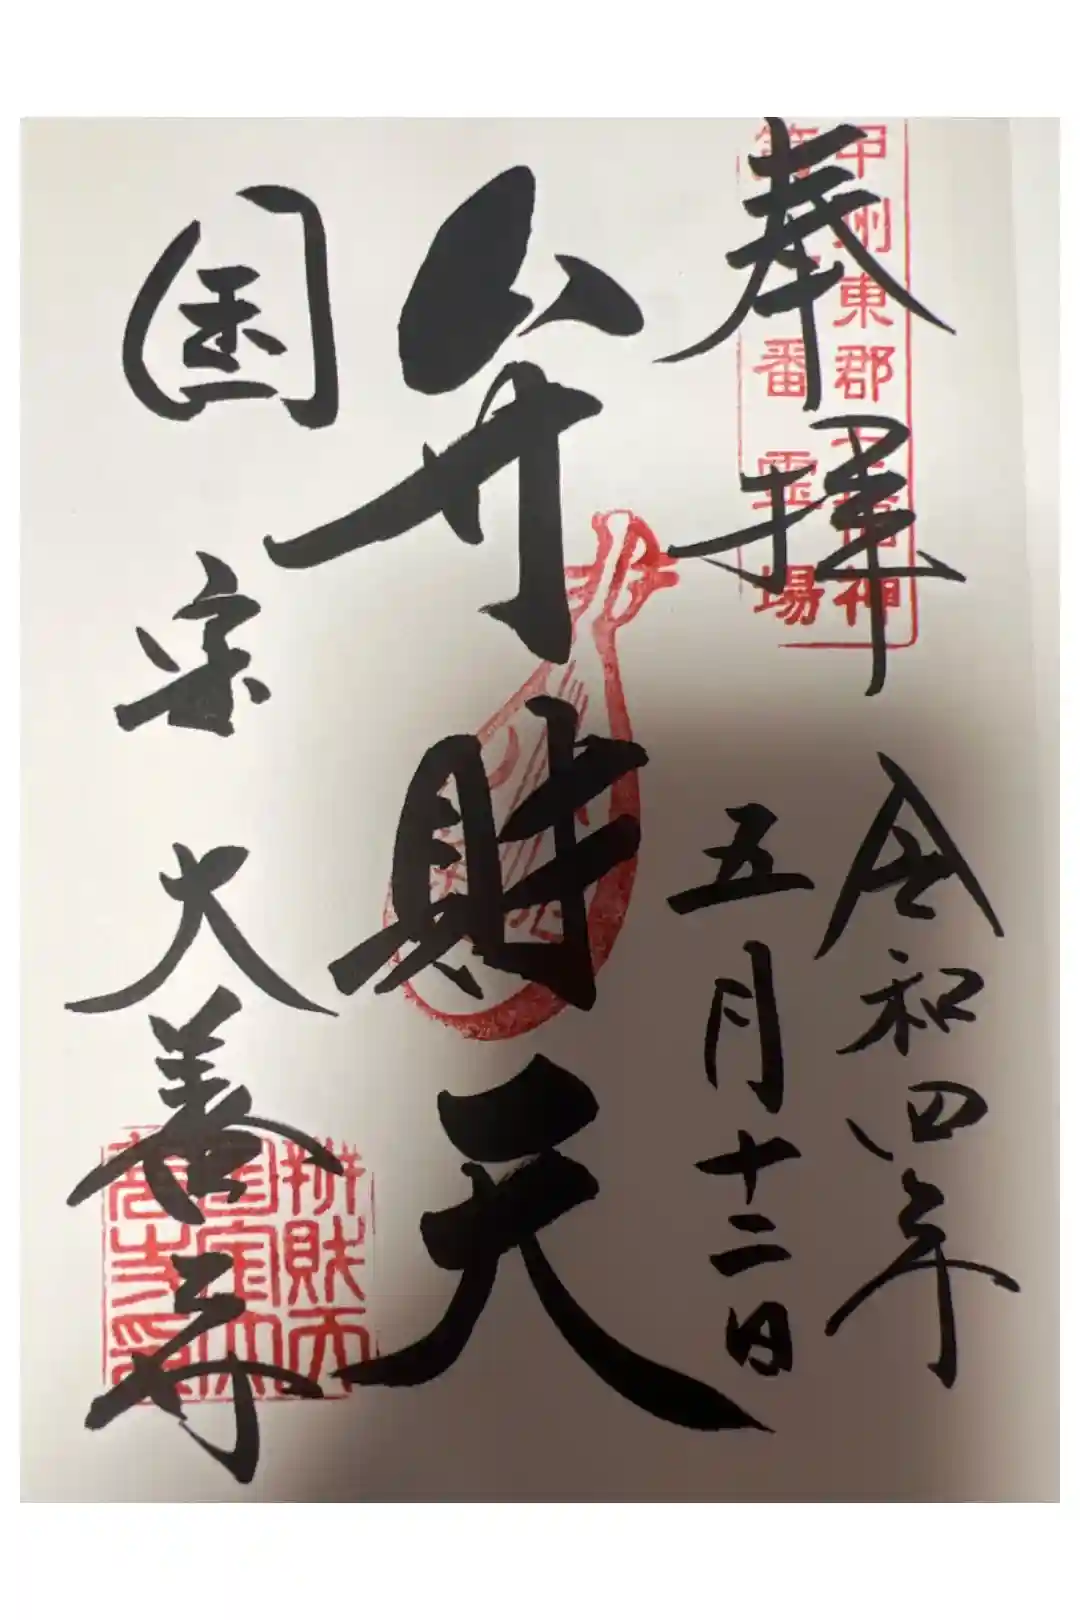 奉拝
甲州東郡七福神
番霊場
令和四年
五月十二日
弁財天
国宝 大善寺
辨財天